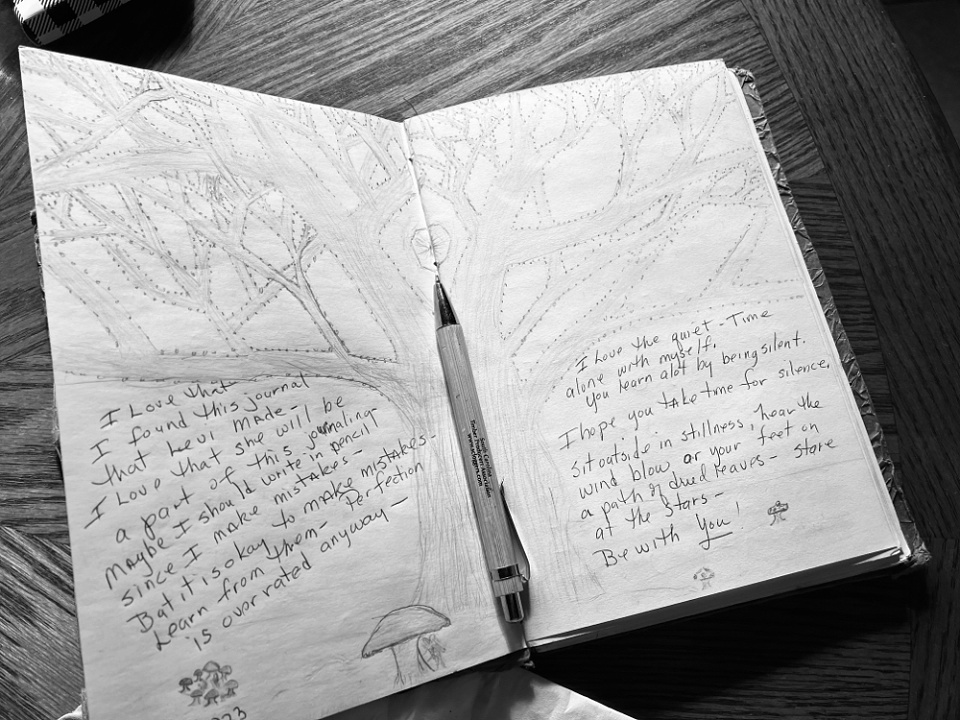 I Love that
I found this journal
that Levi made -
I Love that she will be
a part of this journaling-
Maybe I should write in pencil!
since I make mistakes -
But it is okay to make mistakes -
Learn from them - Perfection
is over rated anyway -
I Love the quiet - Time
alone with myself.
You learn alot by being silent.
I hope you take time for silence,
sit outside in stillness, hear the
wind blow or your feet on
a path of dried leaves - stare
at the stars -
Be with You!
South Carolina